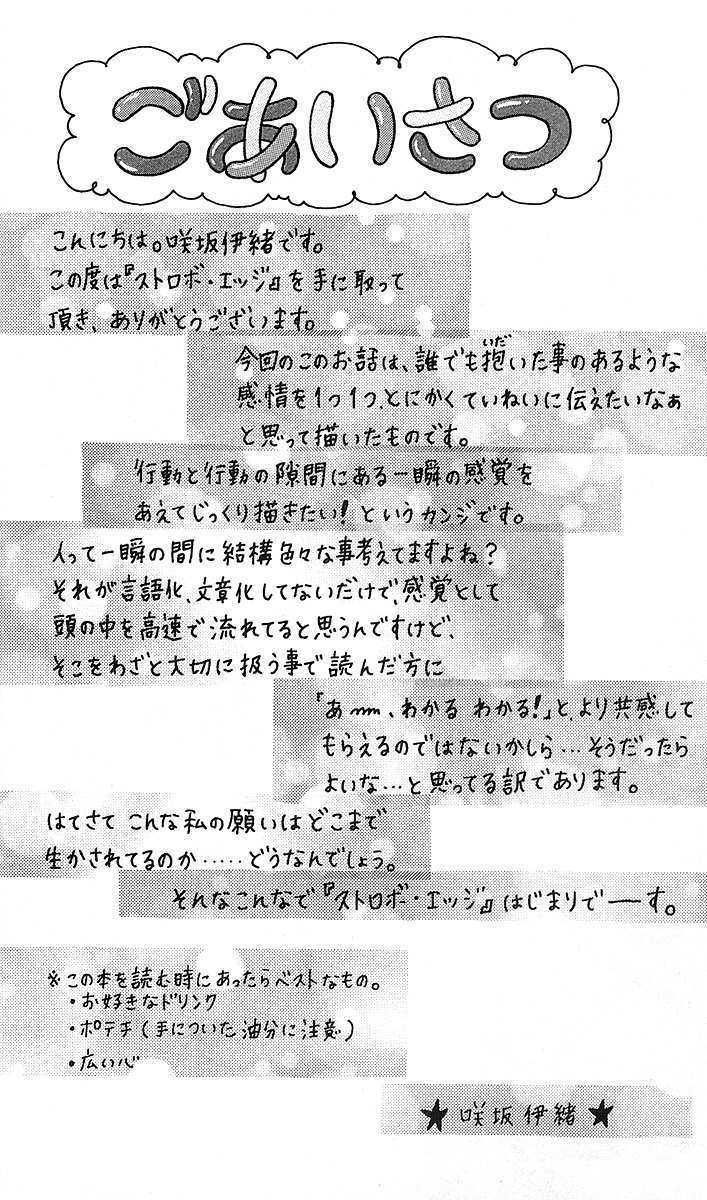 ごあいさつ
こんにちは。咲坂伊緒です。
この度は『ストロボ・エッジ』を手に取って
頂き、ありがとうございます。
今回のこのお話は、誰でも抱いた事のあるような
感情を1つ1つ、とにかくていねいに伝えたいなぁ
と思って描いたものです。
行動と行動の隙間にある一瞬の感覚を
あえてじっくり描きたい!というカンジです。
人って一瞬の間に結構色々な事考えてますよね?
それが言語化、文章化してないだけで、感覚として
頭の中を高速で流れてると思うんですけど、
そこをわざと大切に扱う事で読んだ方に
「あ〰〰、わかる わかる!」と、より共感して
もらえるのではないかしら…そうだったら
よいな…と思ってる訳であります。
はてさて こんな私の願いは どこまで
生かされてるのか……どうなんでしょう。
そんなこんなで『ストロボ・エッジ』はじまりでーす。
※この本を読む時にあったらベストなもの。
・お好きなドリンク
・ポテチ(手についた油分に注意)
・広い心
★ 咲坂伊緒 ★